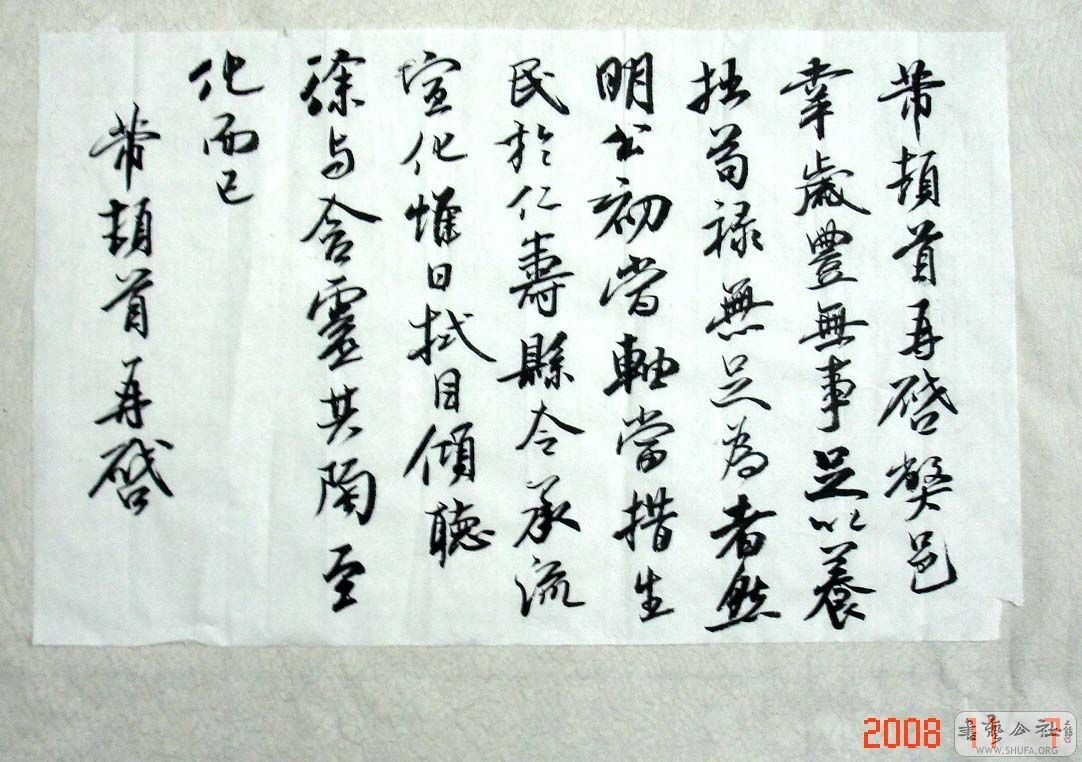 芾頓首再啓弊邑
幸歲豐無事足以養
拙苟祿無足為者然
明公初當軸當措生
民於仁壽縣令承流
宣化惟日拭目傾聽
徐與含靈共陶至
化而已
芾頓首再啓
2008 11 7
書藝公社
WWW.SHUFA.ORG